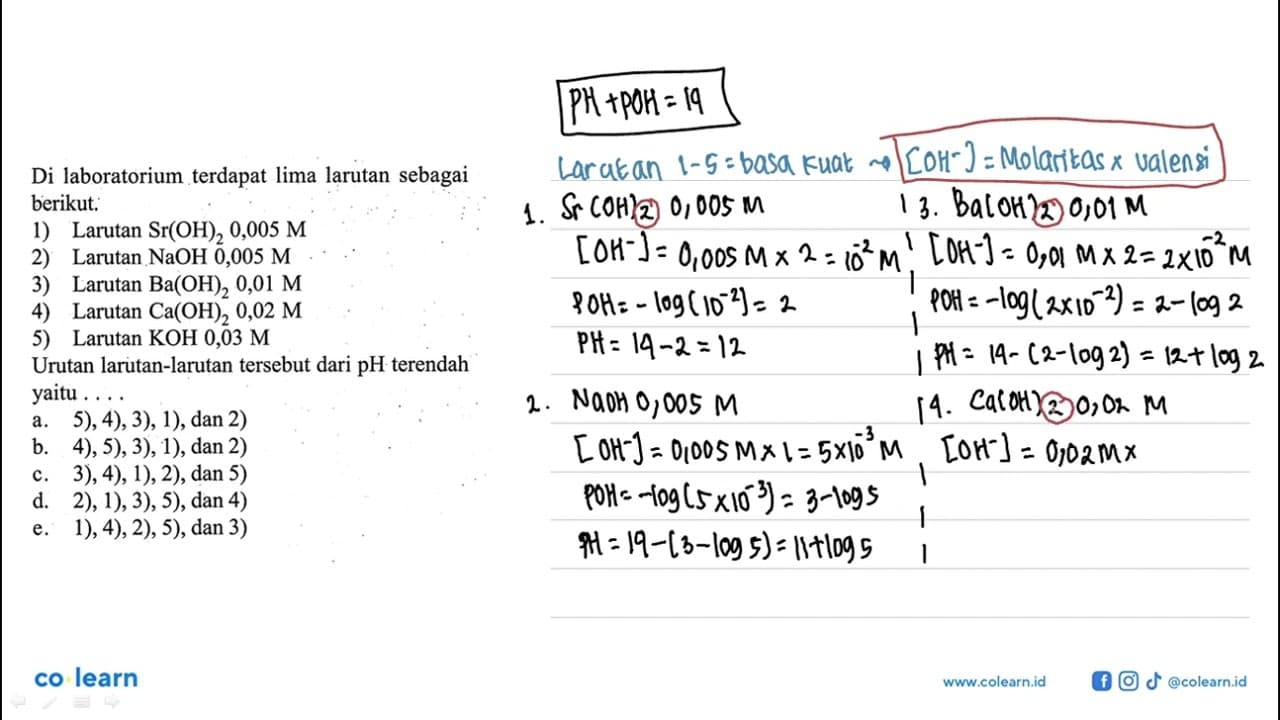 Di laboratorium terdapat lima larutan sebagai
berikut.
1) Larutan Sr(OH)₂ 0,005 M
2) Larutan NaOH 0,005 M
3) Larutan Ba(OH)₂ 0,01 M
4) Larutan Ca(OH)₂ 0,02 M
5) Larutan KOH 0,03 M
Urutan larutan-larutan tersebut dari pH terendah
yaitu . . . .
a. 5), 4), 3), 1), dan 2)
b. 4), 5), 3), 1), dan 2)
c. 3), 4), 1), 2), dan 5)
d. 2), 1), 3), 5), dan 4)
e. 1), 4), 2), 5), dan 3)
PH + POH = 14
Larutan 1-5 = basa kuat → [OH⁻] = Molaritas x valensi
1. Sr(OH)2 0,005 M
[OH⁻] = 0,005 M x 2 = 10⁻² M
POH = - log (10⁻²) = 2
PH = 14 - 2 = 12
2. NaOH 0,005 M
[OH⁻] = 0,005 M x 1 = 5x10⁻³ M
POH = -log (5 x 10⁻³) = 3 - log 5
PH = 14 - (3 - log 5) = 11 + log 5
3. Ba(OH)2 0,01 M
[OH⁻] = 0,01 M x 2 = 2x10⁻² M
POH = -log (2x10⁻²) = 2 - log 2
PH = 14 - (2 - log 2) = 12 + log 2
4. Ca(OH)2 0,02 M
[OH⁻] = 0,02 M x
co learn
www.colearn.id
@colearn.id